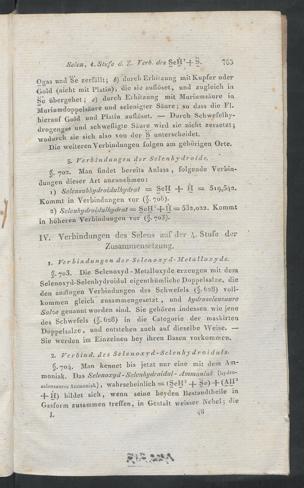 Selen, 4. Stufe d. Z. Verb. des SeH² + S. 753
Ogas und Se zerfällt; b) durch Erhitzung mit Kupfer oder
Gold (nicht mit Platin), die sie auflöset, und zugleich in
Se übergehet; c) durch Erhitzung mit Muriumsäure in
Muriumdoppelsäure und selenigter Säure; so dass die Fl.
hierauf Gold und Platin auflöset. — Durch Schwefelhy-
drogengas und schwefligte Säure wird sie nicht zersetzt;
wodurch sie sich also von der S unterscheidet.
Die weiteren Verbindungen folgen an gehörigen Orte.
3. Verbindungen der Selenhydroide.
§. 702. Man findet bereits Anlass, folgende Verbin-
dungen dieser Art anzunehmen:
1) Selensubhydroidulhydrat = SeH + H = 519,542.
Kommt in Verbindungen vor (§. 706).
2) Selenhydroidulhydrat = SeH² + H = 532,022. Kommt
in höheren Verbindungen vor (§. 708).
IV. Verbindungen des Selens auf der 4. Stufe der
Zusammensetzung.
1. Verbindungen der Selenoxyd-Metalloxyde.
§. 703. Die Selenoxyd-Metalloxyde erzeugen mit dem
Selenoxyd-Selenhydroidul eigenthümliche Doppelsalze, die
den auflögen Verbindungen des Schwefels (§. 628) voll-
kommen gleich zusammengesetzt, und hydroselensaure
Salze genannt worden sind. Sie gehören indessen wie jene
des Schwefels (§. 628) in die Categorie der maskirten
Doppelsalze, und entstehen auch auf dieselbe Weise. —
Sie werden im Einzelnen bey ihren Basen vorkommen.
2. Verbind. des Selenoxyd-Selenhydroiduls.
§. 704. Man kennet bis jetzt nur eine mit dem Am-
moniak. Das Selenoxyd-Selenhydroidul-Ammoniak (hydro-
selensaures Ammoniak), wahrscheinlich = (SeH² + Se) + (AH³
+ H) bildet sich, wenn seine beyden Bestandtheile in
Gasform zusammen treffen, in Gestalt weisser Nebel; die
I. 48